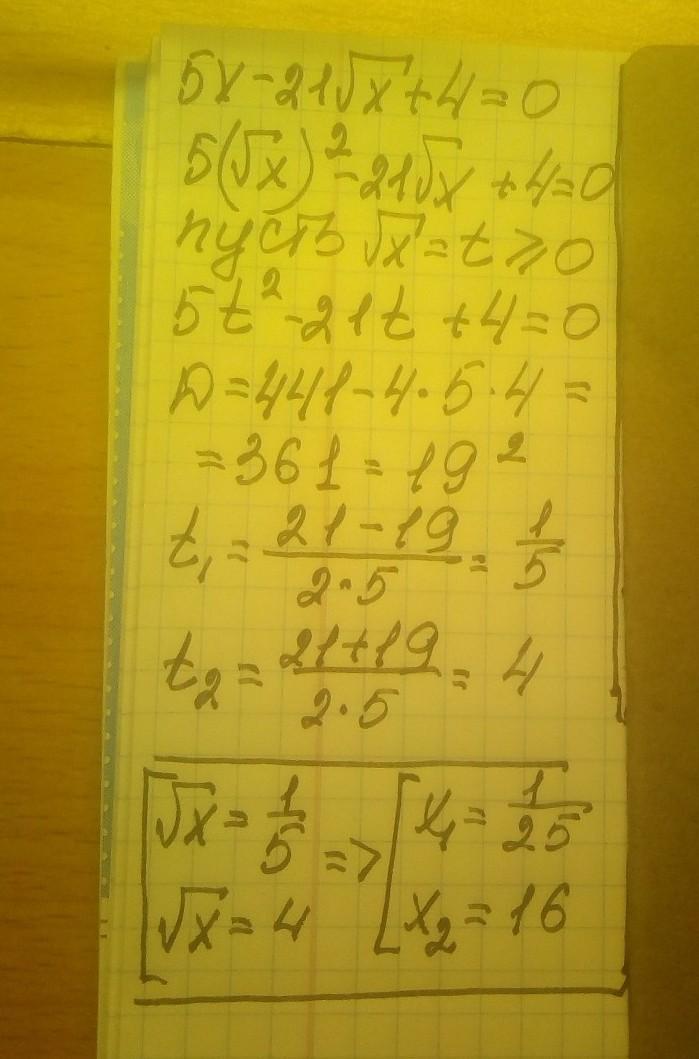 5x-21√x+4=0
5(√x)²-21√x+4=0
пусть √x=t⩾0
5t²-21t+4=0
D=441-4·5·4=
=361=19²
t₁=(21-19)/(2·5)=1/5
t₂=(21+19)/(2·5)=4
[√x=1/5 => [x₁=1/25
√x=4 x₂=16